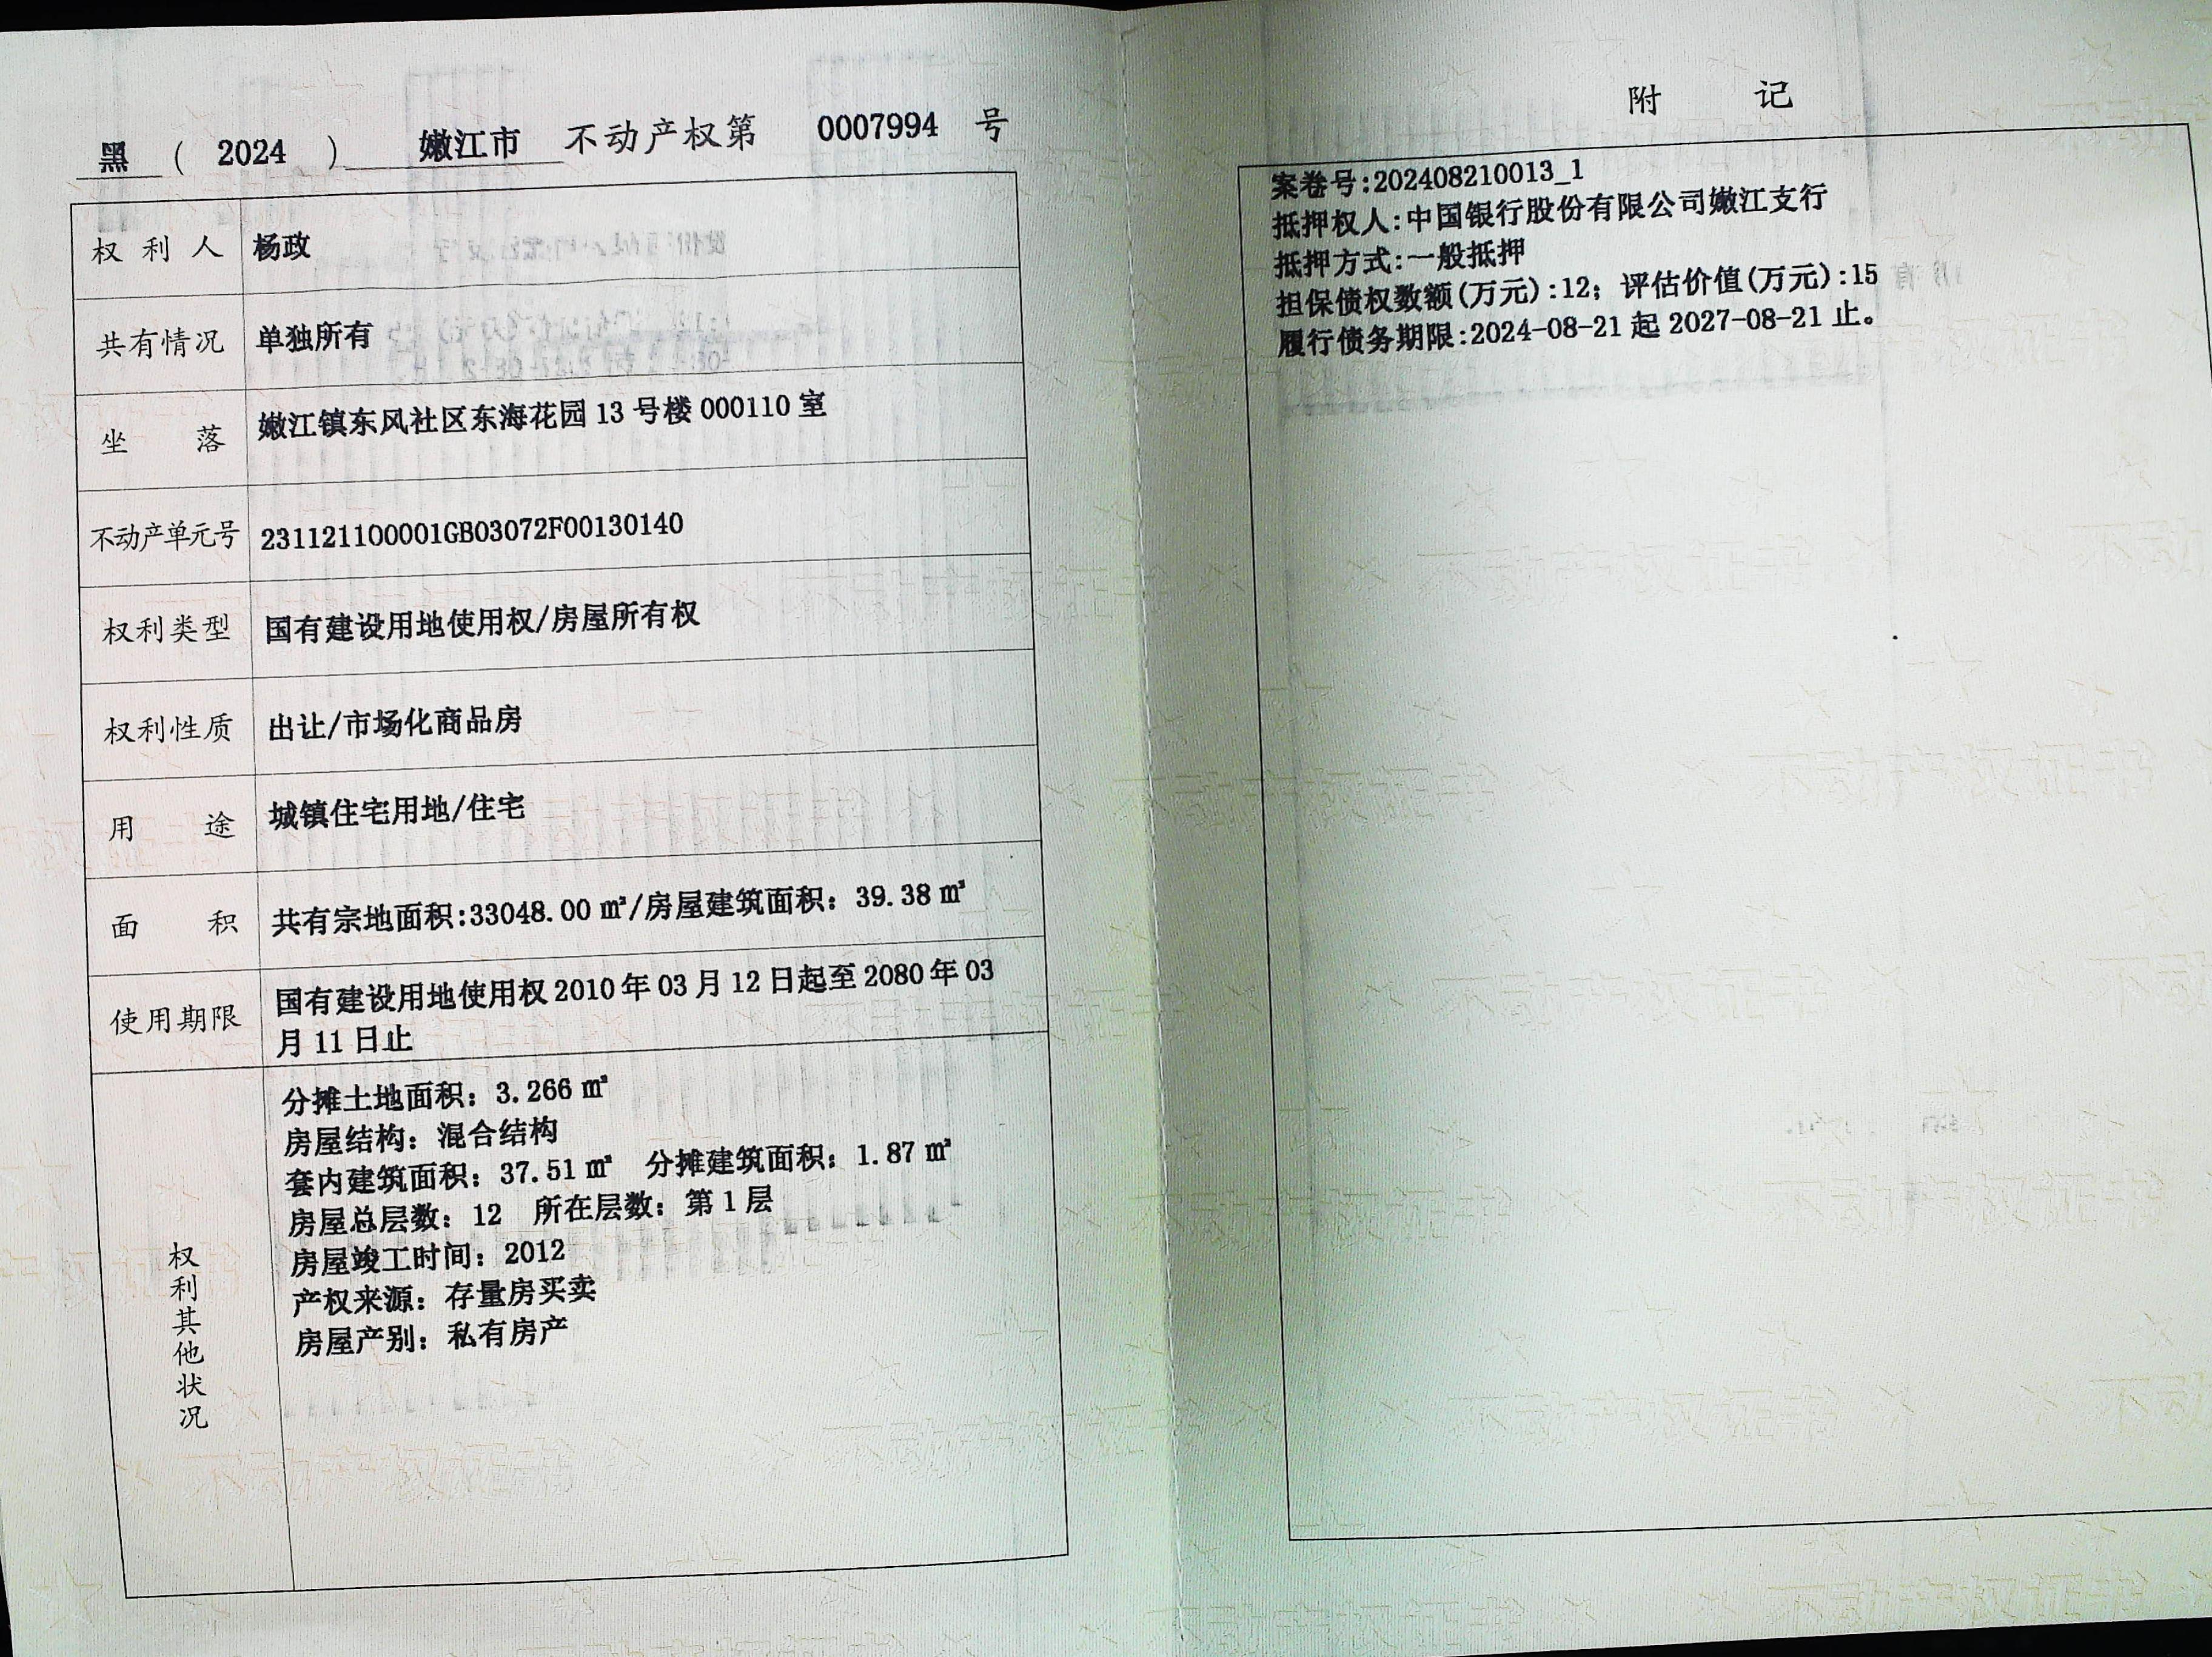 黑 ( 2024 ) 嫩江市 不动产权第 0007994 号
权利人 杨政
共有情况 单独所有
坐落 嫩江镇东风社区东海花园 13 号楼 000110 室
不动产单元号 231121100001GB03072F00130140
权利类型 国有建设用地使用权/房屋所有权
权利性质 出让/市场化商品房
用途 城镇住宅用地/住宅
面积 共有宗地面积:33048.00 ㎡/房屋建筑面积: 39.38 ㎡
使用期限 国有建设用地使用权 2010 年 03 月 12 日起至 2080 年 03
月 11 日止
权利其他状况
分摊土地面积: 3.266 ㎡
房屋结构: 混合结构
套内建筑面积: 37.51 ㎡ 分摊建筑面积: 1.87 ㎡
房屋总层数: 12 所在层数: 第 1 层
房屋竣工时间: 2012
产权来源: 存量房买卖
房屋产别: 私有房产
附 记
案卷号:202408210013_1
抵押权人:中国银行股份有限公司嫩江支行
抵押方式:一般抵押
担保债权数额(万元):12; 评估价值(万元):15
履行债务期限:2024-08-21 起 2027-08-21 止。